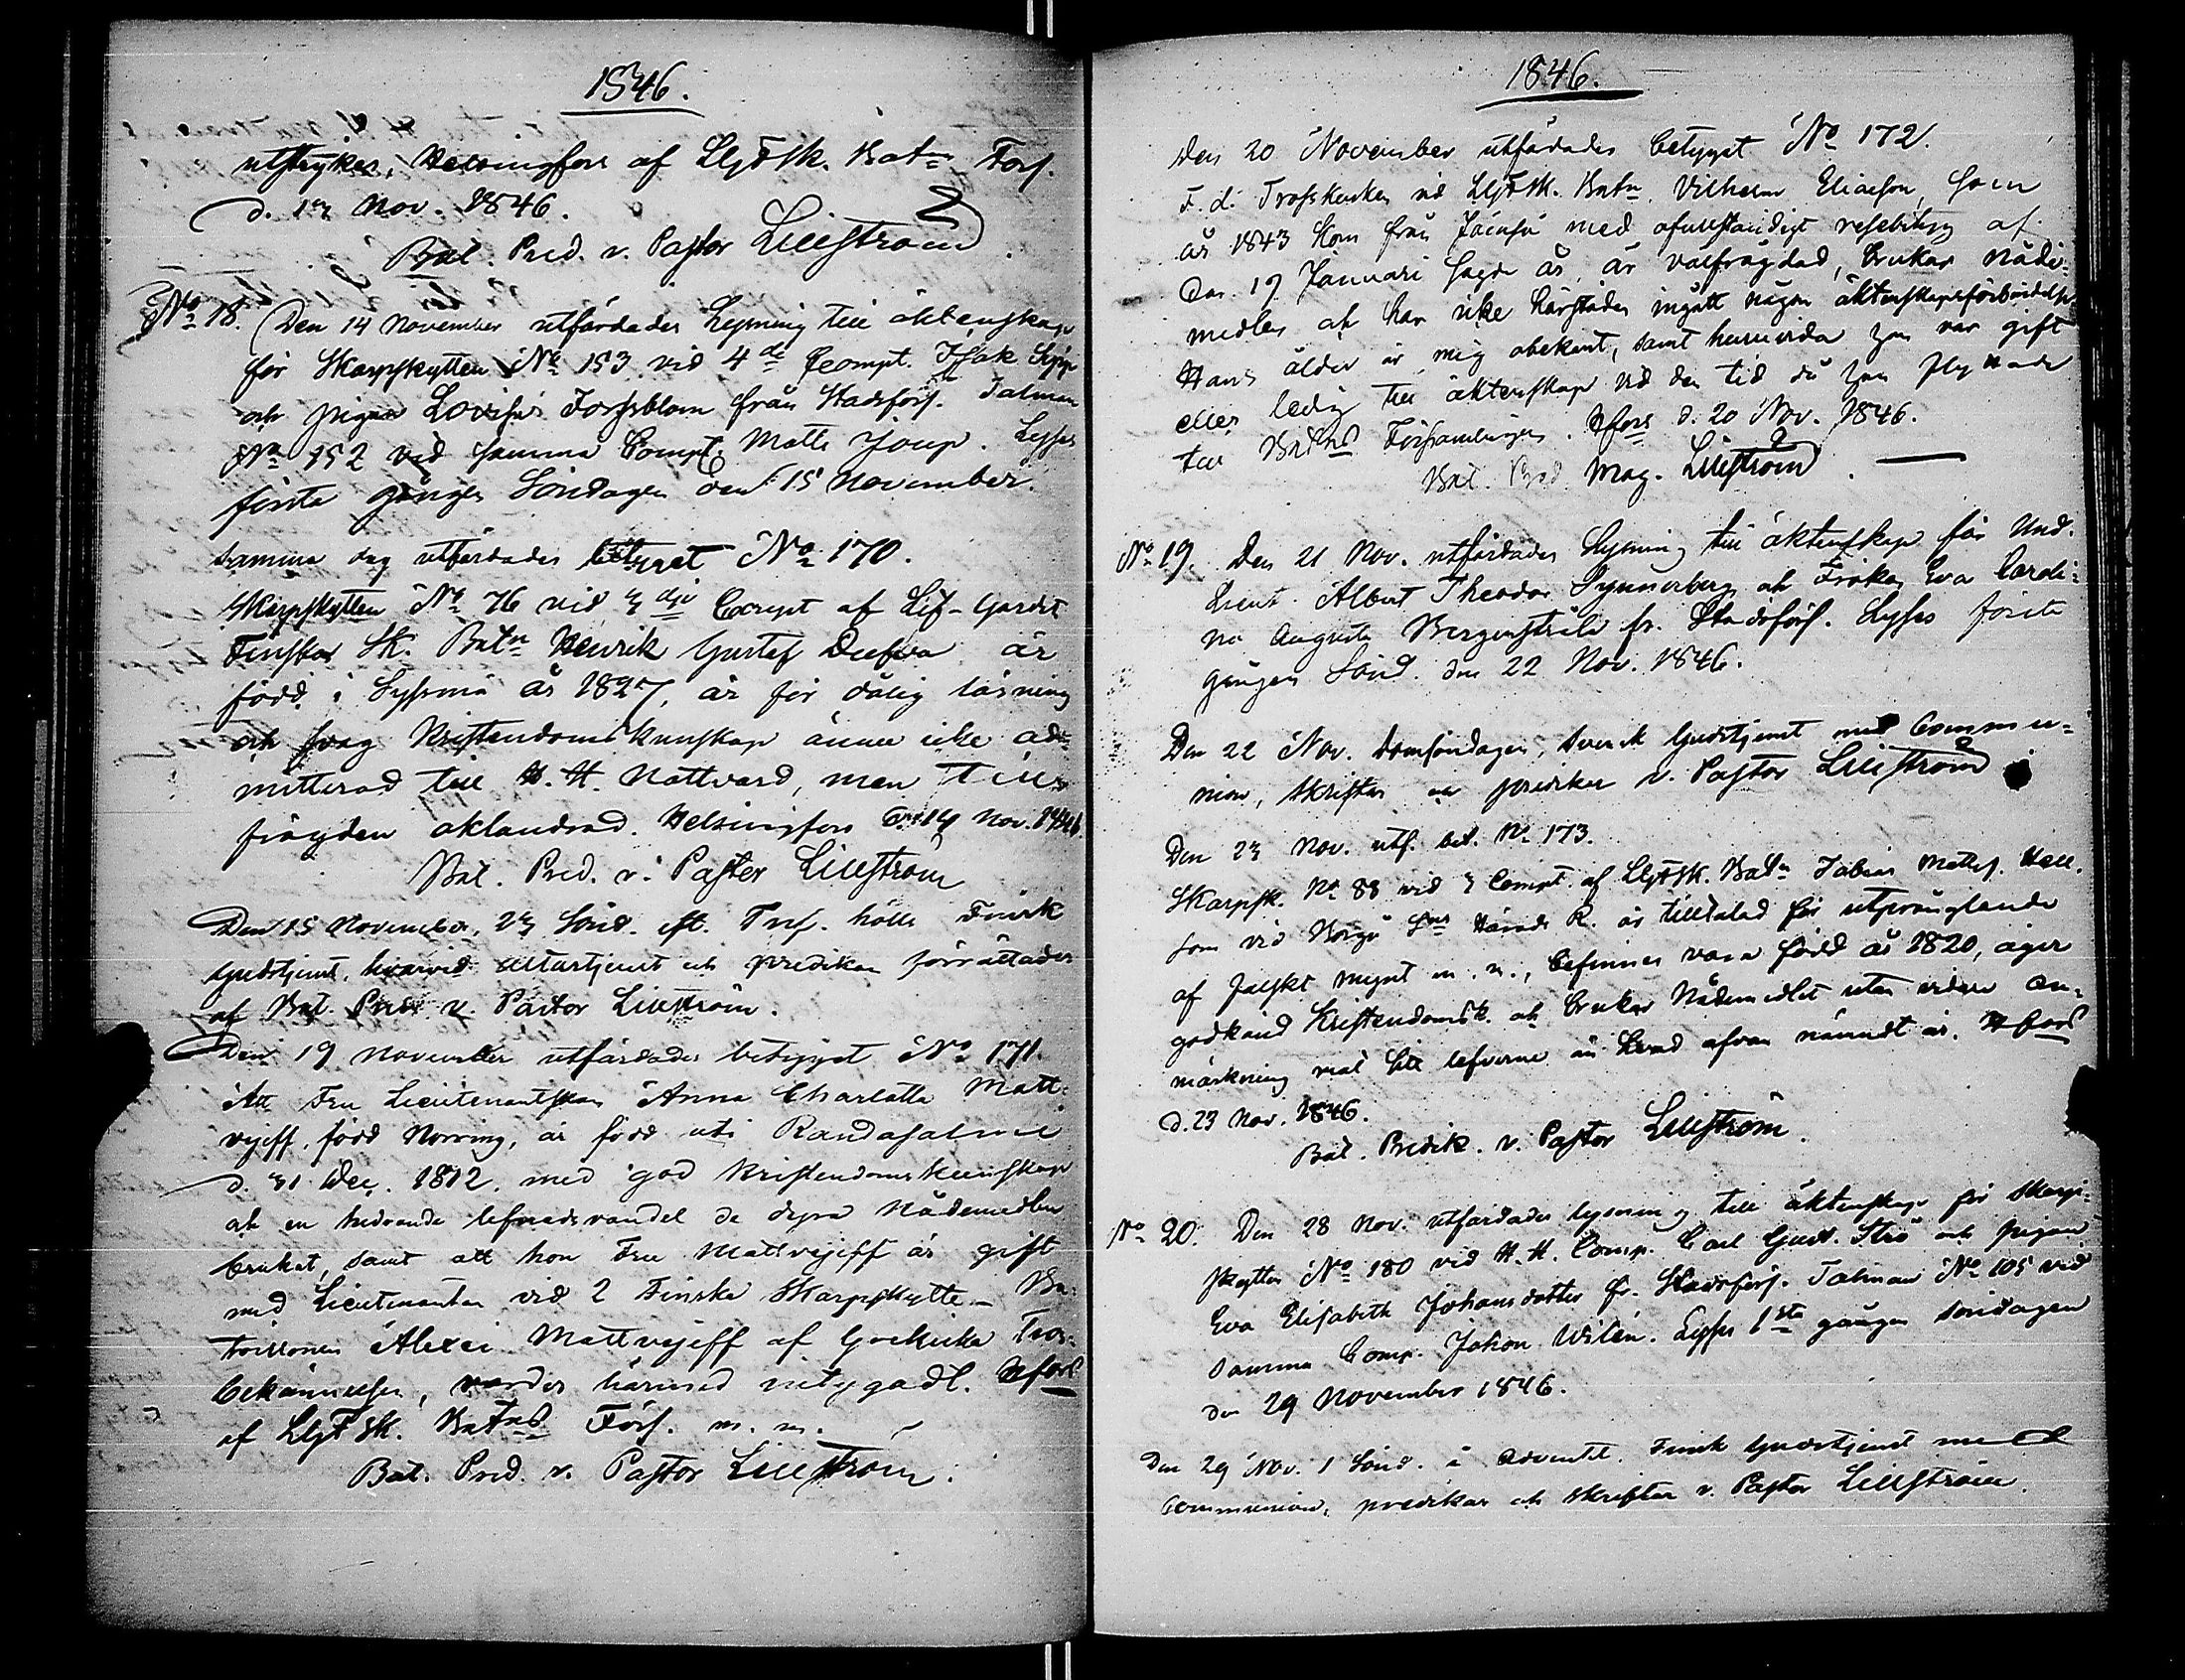 1846.
utstrykes, Helsingfors af LGFSk. Batns Förs.
d. 13 Nov. 1846.
Bat. Pred. v. Pastor Lilljström
No 18. Den 14 November utfärdades Lysning till äktenskap
för Skarpskytten No 153 vid 4de Compt. Isak
och pigan Lovisa Forssblom från Stadsförs. Talman
No 152 vid samma Compt. Matts Joup. Lyses
första gången Söndagen den 15 November.
Samma dag utfärdades betyget No 170.
Skarpskytten No 76 vid 3dje Compt af Lif-Gardets
Finska Sk. Batn Henrik Gustaf Dufva är
född i Sysmä år 1827, är för dålig läsning
och svag Kristendomskunskap ännu icke ad-
mitterad till H. H. Nattvard, men till
frägden oklandrad. Helsingfors d. 14 Nov. 1846.
Bat. Pred. v. Pastor Lilljström
Den 15 November, 23 Sönd. eft. Tref. hölls Finsk
Gudstjenst, hvarvid altartjenst och predikan förrättades
af Bat. Pred. v. Pastor Lillström.
Den 19 November utfärdades betyget No 171.
Att Fru Lieutenantskan Anna Charlotta Matt-
vejeff, född Norring, är född uti Randasalmi
d. 31 Dec. 1812, med god Kristendomskunskap
och en hedrande lefnadsvandel de dyra Nådemedlen
brukat, samt att hon Fru Mattvejeff är gift
med Lieutenanten vid 2 Finska Skarpskytte- Ba-
taillonen Alexei Mattvejeff af Grekiska Tros-
bekännelsen, varder härmed intygadt. Hfors
af LGFSk. Batns Förs. m. m.
Bat. Pred. v. Pastor Lilljström.
1846.
Den 20 November utfärdades betyget No 172.
F. d. Trosskusken vid LGFSk. Batn Vilhelm Eliasson, som
år 1843 kom från med ofullständigt resebetyg af
den 19 Januari sagde år, är välfrägdad, brukar Nåde-
medlen och har icke härstädes ingått någon äktenskapsförbindelse.
Hans ålder är mig obekant, samt huruvida han var gift
eller ledig till äktenskap vid den tid då han flyttade
till Batns Församlingen. Hfors d. 20 Nov. 1846.
Bat. Pred. Mag. Lilljström.
No 19. Den 21 Nov. utfärdades Lysning till äktenskap för Und.
Lieut. Albert Theodor Synnerberg och Fröken Eva Caroli-
na Augusta Bergenstråle fr. Stadsförs. Lyses första
gången Sönd. den 22 Nov. 1846.
Den 22 Nov. Domsöndagen, Svensk Gudstjenst med Commu-
nion, skriftar och predikar v. Pastor Lilljström
Den 23 Nov. utf. bet. No 173.
Skarpsk. No 88 vid 3 Compt. af LGFSk. Batn Tobias Mattss. Hall.
som vid Borgå Härads R. är tilltalad för utprånglande
af falskt mynt m. m., befinnes vara född år 1820, äger
godkänd Kristendomsk. och brukar Nådemedlet utan vidare an-
märkning vid sitt lefverne än hvad ofvan nämndt är. Hfors
d. 23 Nov. 1846.
Bat. Predik. v. Pastor Lilljström.
No 20. Den 28 Nov. utfärdades lysning till äktenskap för Skarp-
skytten No 180 vid H. H. Comp. Carl Gust. Strå och pigan
Eva Elisabeth Johansdotter fr. Stadsförs. Talman No 105 vid
samma Comp. Johan Wilén. Lyses 1sta gången söndagen
den 29 November 1846.
Den 29 Nov. 1 Sönd. i Adventet. Finsk Gudstjenst med
Communion, predikar och skriftar v. Pastor Lilljström.